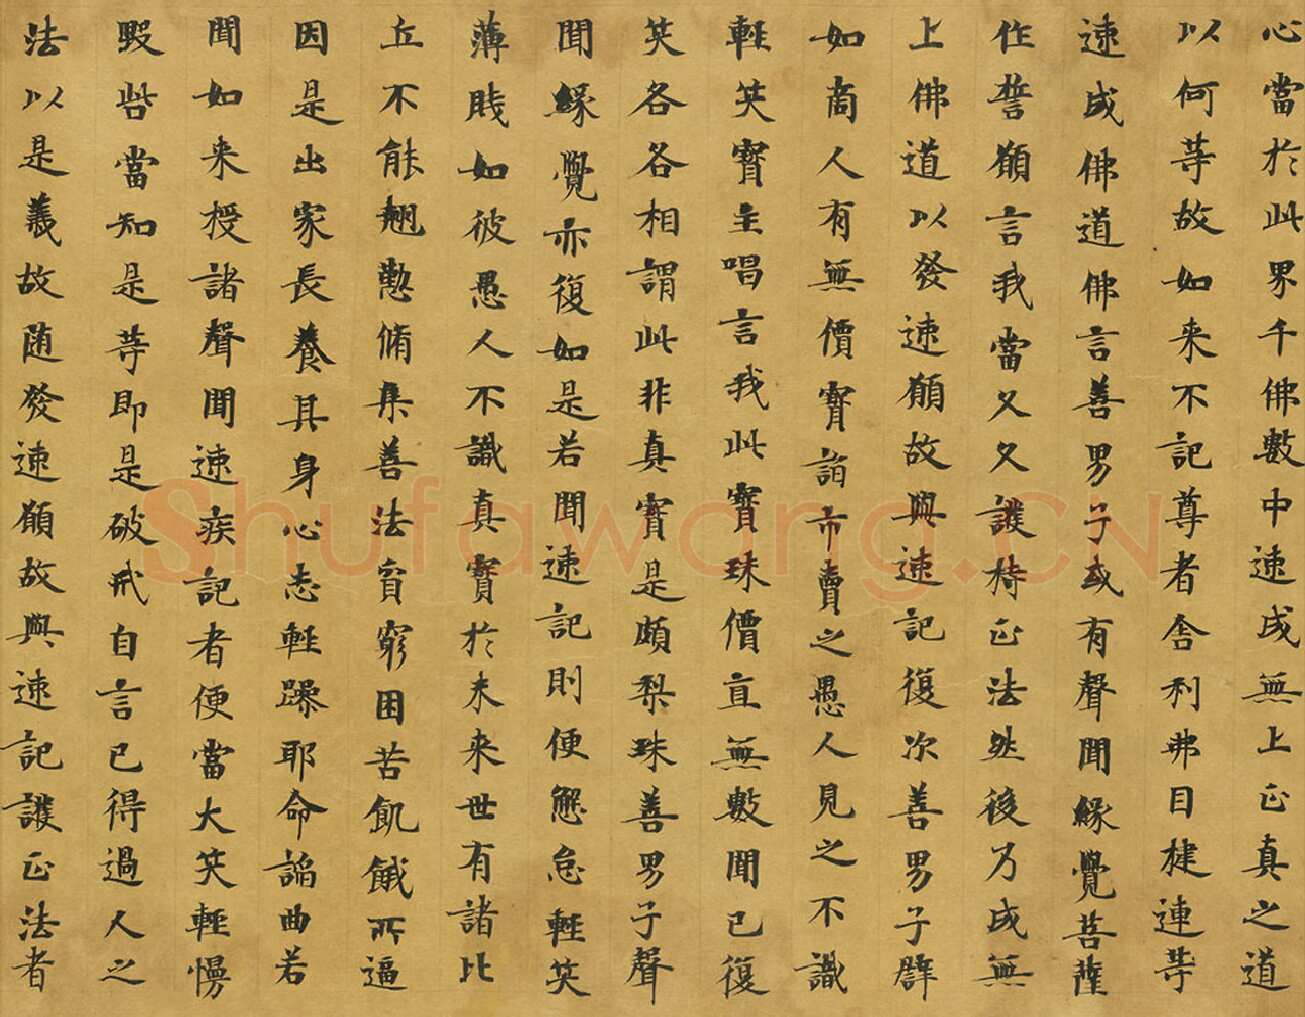 心當於此界千佛數中速成無上正真之道
以何等故如来不記尊者舍利弗目揵連等
速成佛道佛言善男子或有聲聞緣覺菩薩
作誓願言我當久久護持正法然後乃成無
上佛道以發速願故與速記復次善男子譬
如商人有無價寶詣市賣之愚人見之不識
輕笑寶主唱言我此寶珠價直無數聞已復
笑各各相謂此非真寶是頗梨珠善男子聲
聞緣覺亦復如是若聞速記則便懈怠輕笑
薄賤如彼愚人不識真寶於未来世有諸比
丘不能翹懃脩集善法貧窮困苦飢餓所逼
因是出家長養其身心志輕躁耶命諂曲若
聞如来授諸聲聞速疾記者便當大笑輕慢
毀呰當知是等即是破戒自言已得過人之
法以是義故随發速願故與速記護正法者
Shufawang.CN